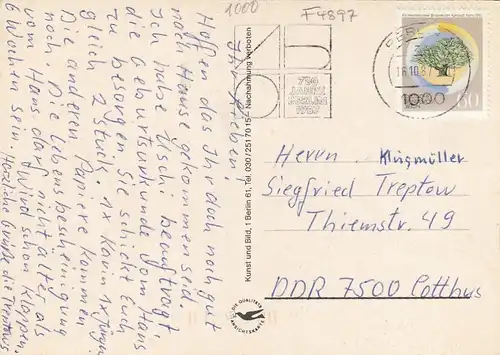 1000
F 4897
Ihr Lieben!
Hoffen das Ihr doch noch gut
nach Hause gekommen seid.
Ich habe Uschi beauftragt
die Geburtsurkunde vom Hans
zu besorgen Sie schickt Euch
gleich 2 Stück. 1x Karin 1x Jürgen
Die anderen Papiere kommen
noch. Die Lebensbescheinigung
vom Hans darf nicht älter als
6 Wochen sein. Wird schon klappen.
Herzliche Grüße die Treptows
Kunst und Bild, 1 Berlin 61, Tel. 030 / 251 70 15 – Nachahmung verboten
DIE QUALITÄTS
ANSICHTSKARTE
750
JAHRE
BERLIN
1987
BERLIN
16.10.87
1000
60
Herrn Klingmüller
Siegfried Treptow
Thiemstr. 49
DDR 7500 Cottbus